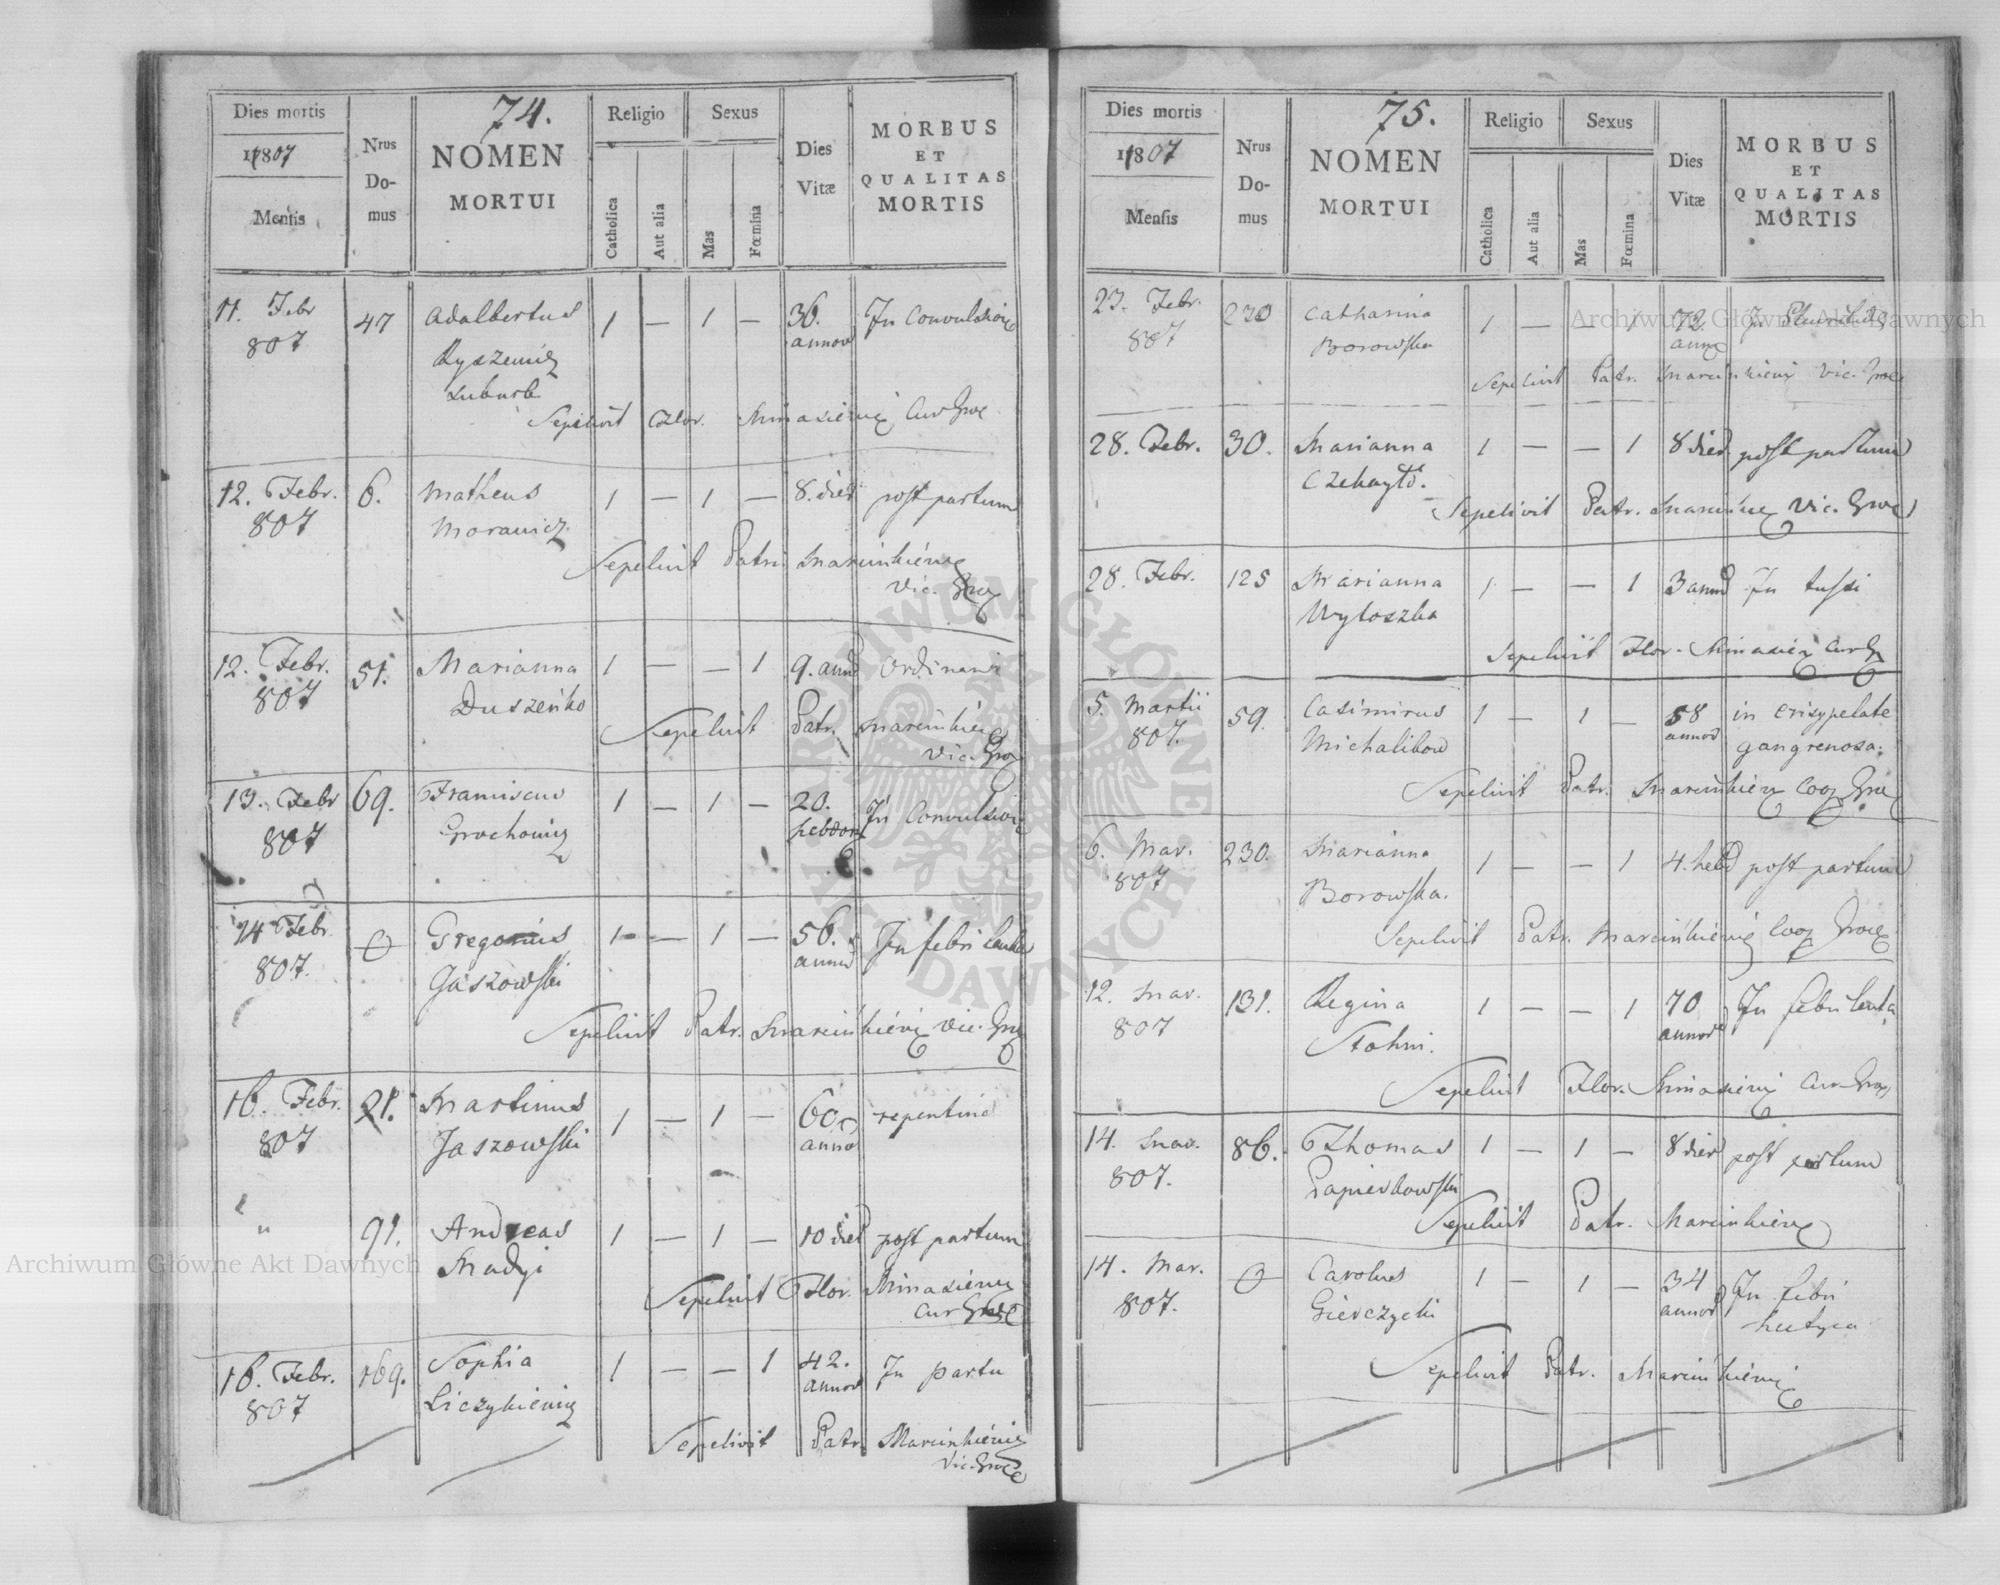 74.
Dies mortis
1807
Mensis
Nrus
Do-
mus
NOMEN
MORTUI
Religio
Catholica
Aut alia
Sexus
Mas
Fœmina
Dies
Vitæ
MORBUS
ET
QUALITAS
MORTIS
11. Febr 47 Adalbertus 1 — 1 — 36. In Convulsione
807 annor
Suburb
Sepelivit Flor. Cur
12. Febr. 6. Matheus 1 — 1 — 8. dier post partum
807 Morawicz
Sepelivit Patr. Marcinkiewicz
Vic.
12. Febr. 51. Marianna 1 — — 1 9. annor ordinaria
807 Duszeńko
Sepelivit Patr. Marcinkiewicz
Vic.
13. Febr 69. Franciscus 1 — 1 — 20. In Convulsione
807 Grochowicz hebdom
14 Febr. 0 Gregorius 1 — 1 — 56. In febri lenta
807. Gaszowski annor
Sepelivit Patr. Marcinkiewicz Vic.
16. Febr. 21. Martinus 1 — 1 — 60 repentina
807 Jaszowski annor
" 91. Andreas 1 — 1 — 10 dier post partum
Sepelivit Flor.
Cur
16. Febr. 169. Sophia 1 — — 1 42. In partu
807 Liczykiewicz annor
Sepelivit Patr. Marcinkiewicz
Vic.
75.
Dies mortis
1807
Mensis
Nrus
Do-
mus
NOMEN
MORTUI
Religio
Catholica
Aut alia
Sexus
Mas
Fœmina
Dies
Vitæ
MORBUS
ET
QUALITAS
MORTIS
23. Febr. 230 Catharina 1 — — 1 72
807 Borowska
Sepelivit Patr. Marcinkiewicz Vic.
28. Febr. 30. Marianna 1 — — 1 8 dier post partum
Sepelivit Patr. Vic.
28. Febr. 125 Marianna 1 — — 1 3 annor In tussi
Wytoszka
Sepelivit Flor. Cur
5. Martii 59. Casimirus 1 — 1 — 58 in erisypelate
807. annor gangrenosa.
Sepelivit Patr. Marcinkiewicz Coop
6. Mar. 230. Marianna 1 — — 1 4. hebd post partum
807 Borowska.
Sepelivit Patr. Marcinkiewicz Coop
12. Mar. 131. Regina 1 — — 1 70 In febri lenta
807 annor
Sepelivit Flor. Cur
14. Mar. 86. Thomas 1 — 1 — 8 dier post partum
807. Papierkowski
Sepelivit Patr. Marcinkiewicz
14. Mar. 0 Carolus 1 — 1 — 34 In febri
807. Gierczycki annor
Sepelivit Patr. Marcinkiewicz
Archiwum Główne Akt Dawnych
Archiwum Główne Akt Dawnych
ARCHIWUM GŁÓWNE
AKT DAWNYCH